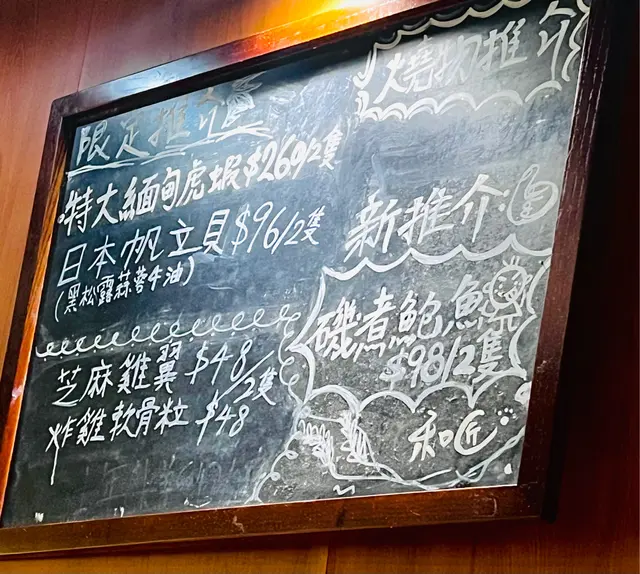 限定推介
特大緬甸虎蝦$260/2隻
日本帆立貝$96/2隻
(黑松露蒜蓉牛油)
芝麻雞翼$48/2隻
炸雞軟骨粒$48
燒物推介
新推介
磯煮鮑魚
$98/2隻
和匠